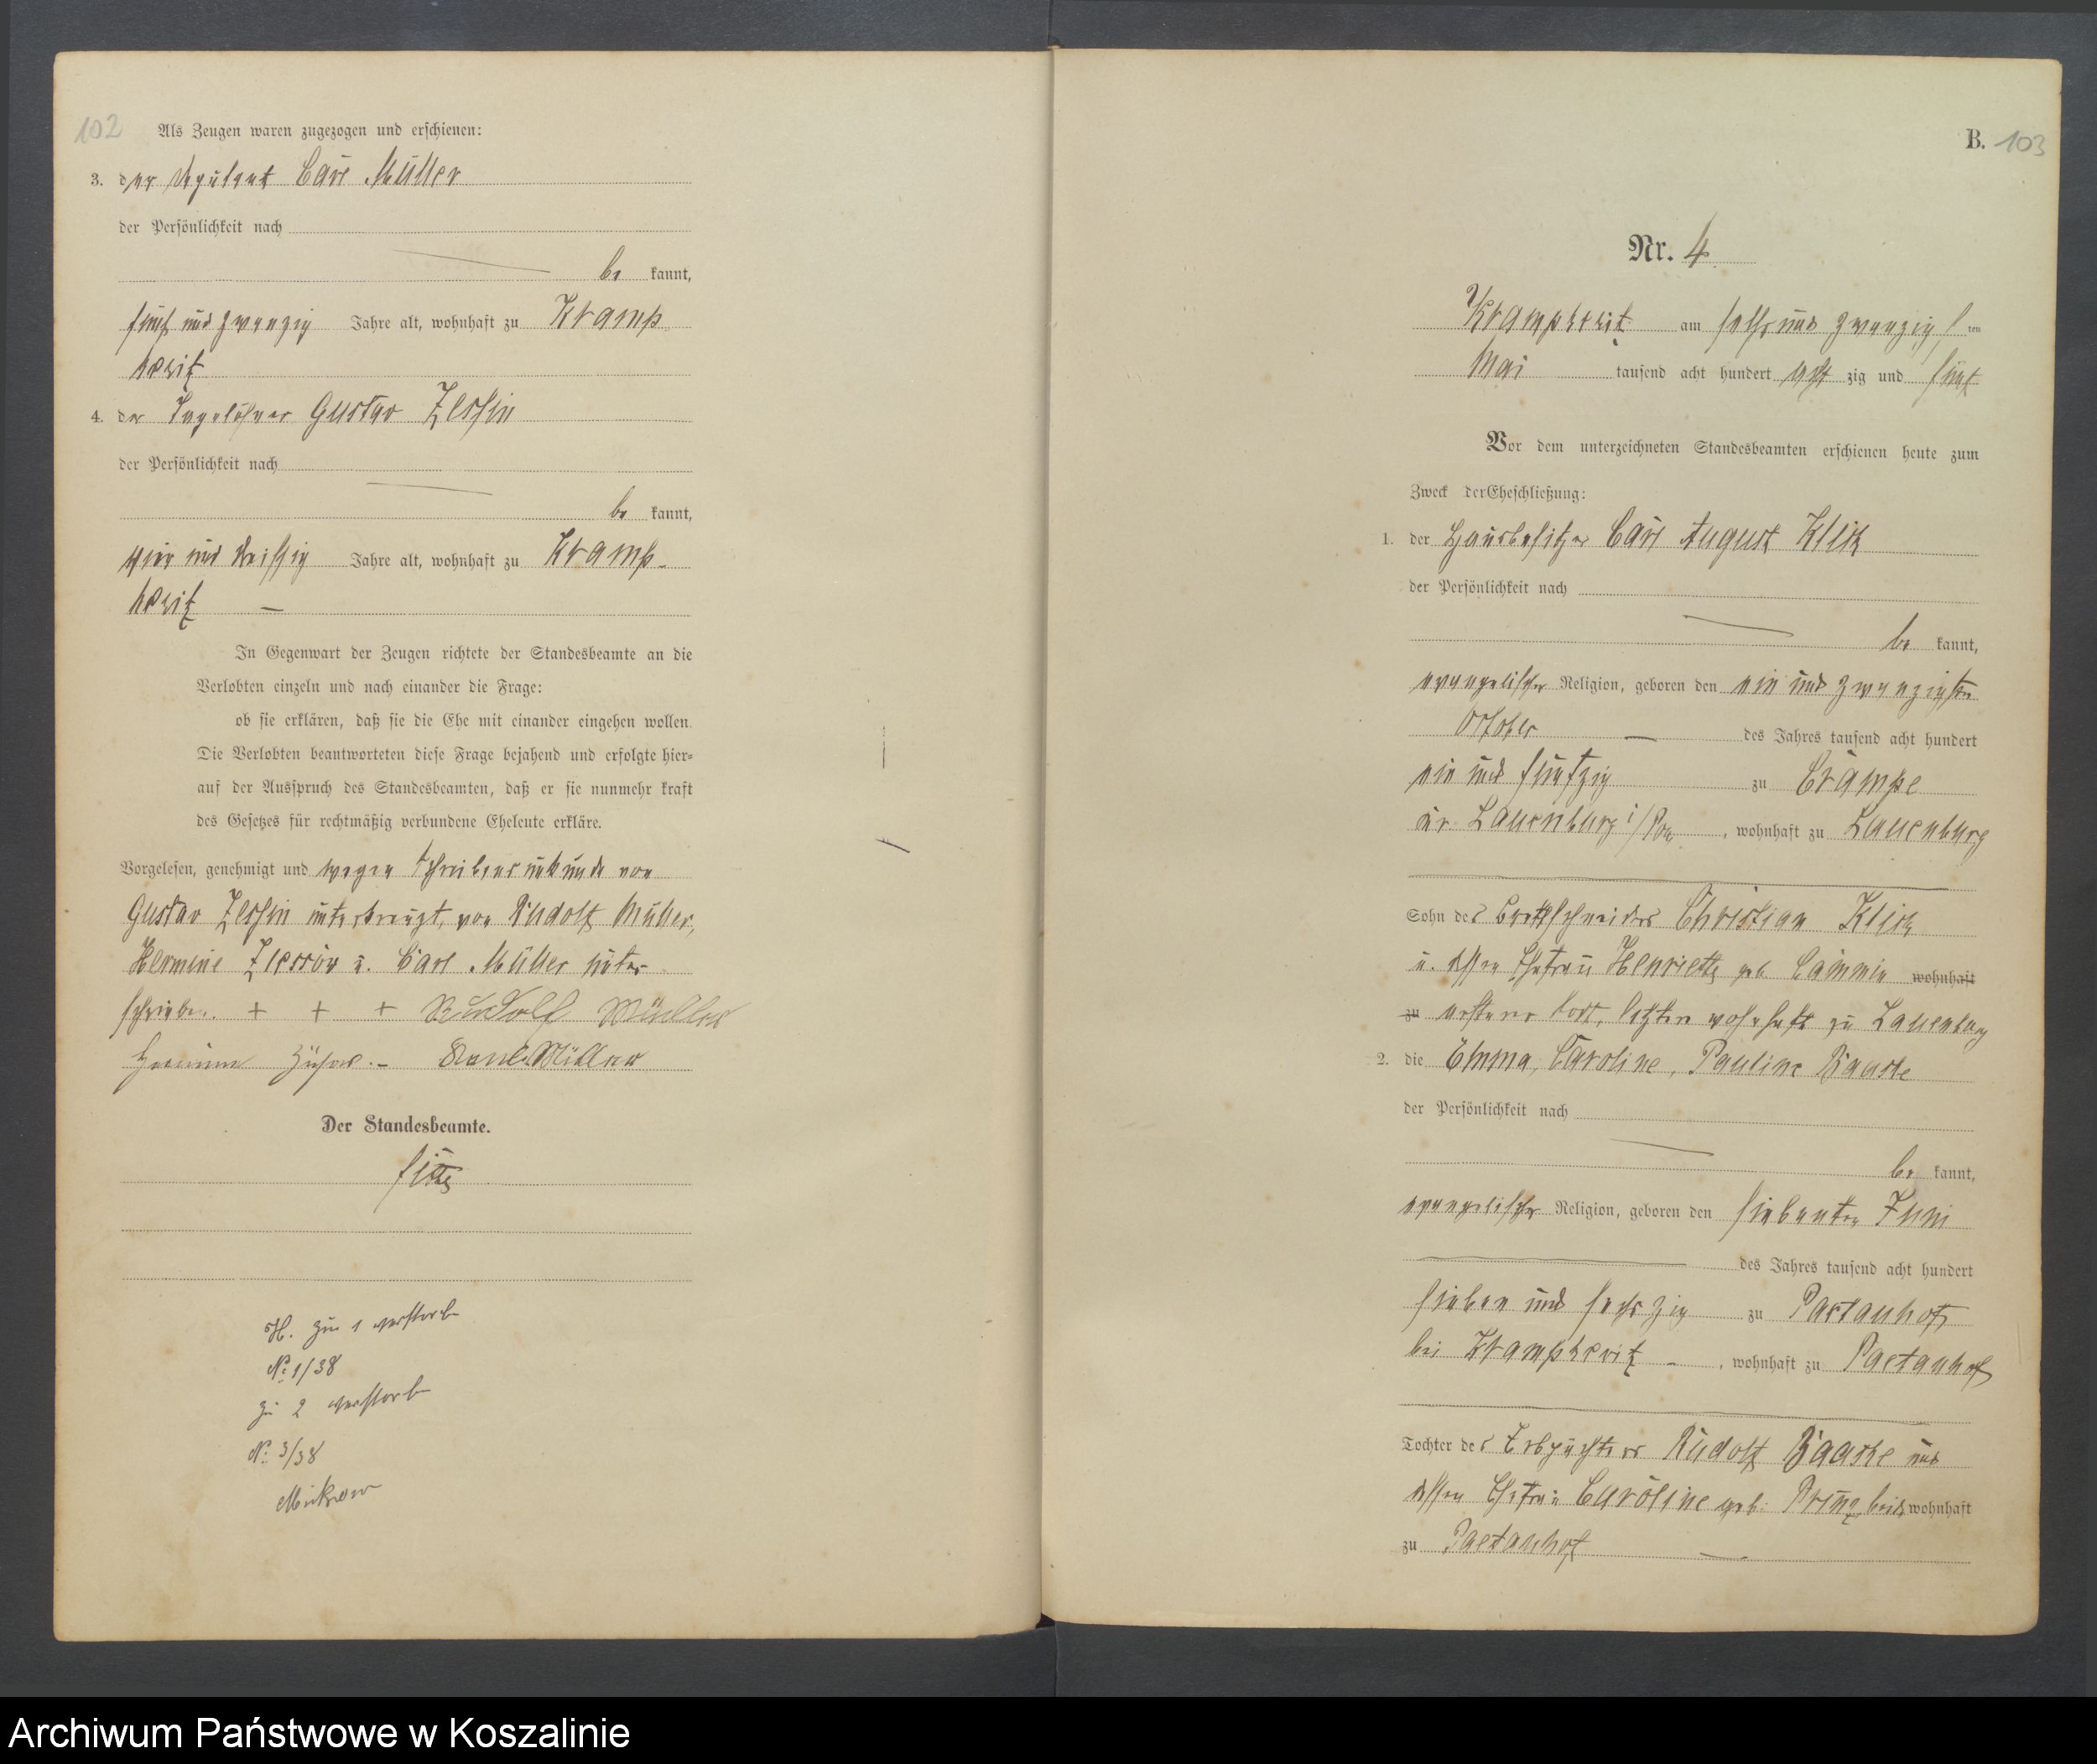 102
Als Zeugen waren zugezogen und erschienen:
3. der Carl Müller
der Persönlichkeit nach
be kannt,
fünf und zwanzig Jahre alt, wohnhaft zu Kramp
kewitz
4. der Tagelöhner Gustav Zessin
der Persönlichkeit nach
be kannt,
vier und dreissig Jahre alt, wohnhaft zu Kramp-
kewitz —
In Gegenwart der Zeugen richtete der Standesbeamte an die
Verlobten einzeln und nach einander die Frage:
ob sie erklären, daß sie die Ehe mit einander eingehen wollen.
Die Verlobten beantworteten diese Frage bejahend und erfolgte hier=
auf der Ausspruch des Standesbeamten, daß er sie nunmehr kraft
des Gesetzes für rechtmäßig verbundene Eheleute erkläre.
Vorgelesen, genehmigt und wegen Schreibensunkunde von
Gustav Zessin unterkreuzt, von Rudolf Müller,
Hermine u. Carl Müller unter
schrieben. + + + Rudolf Müller
Müller
Der Standesbeamte.
H. zu 1 verstorb
No: 1/38
zu 2 verstorb
No: 3/38
B. 103
Nr. 4.
Krampkewitz am sechs und zwanzig sten
Mai tausend acht hundert acht zig und fünf
Vor dem unterzeichneten Standesbeamten erschienen heute zum
Zweck der Eheschließung:
1. der Hausbesitzer Carl August Klick
der Persönlichkeit nach
be kannt,
evangelischer Religion, geboren den ein und zwanzigsten
October — des Jahres tausend acht hundert
ein und fünfzig zu Crampe
Kr. Lauenburg i/Pom, wohnhaft zu Lauenburg
Sohn des Brettschneiders Christian Klick
u. dessen Ehefrau Henriette geb. Cammin wohnhaft
zu ersterer todt, letztere wohnhaft zu Lauenburg
2. die Emma, Caroline, Pauline Baaske
der Persönlichkeit nach
be kannt,
evangelischer Religion, geboren den siebenten Juni
des Jahres tausend acht hundert
sieben und sechszig zu Paetauhof
bei Krampkewitz -, wohnhaft zu Paetauhof
Tochter des Erbpächters Rudolf Baaske und
dessen Ehefrau Caroline geb. Prinz beide wohnhaft
zu Paetauhof —
Archiwum Państwowe w Koszalinie